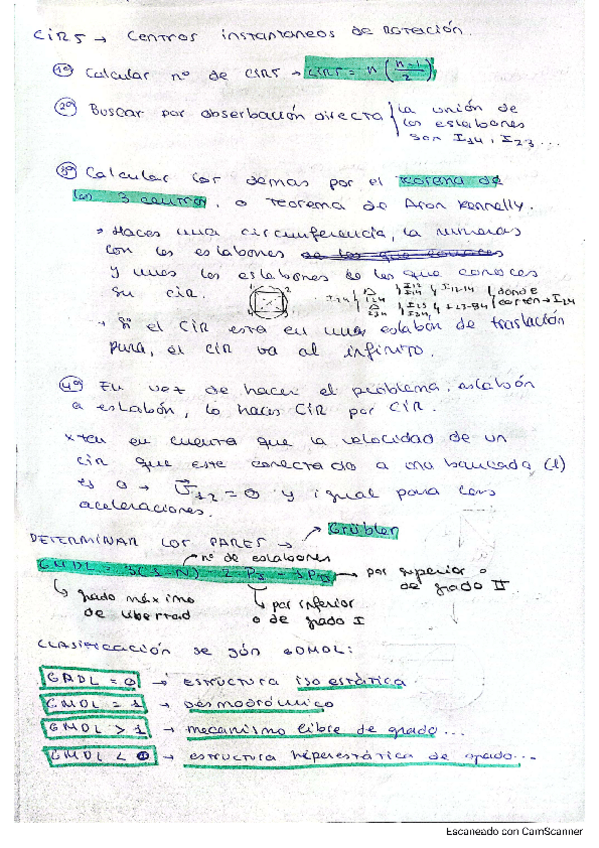 CIRS → Centros instantaneos de Rotación.
1º Calcular nº de CIRS → CIRS = n (n-1/2)
2º Buscar por obserbación directa { la unión de
los eslabones
son I14, I23 ...
3º Calcular los demas por el teorema de
los 3 centros, o teorema de Aron Kennelly.
→ Haces una circunferencia, la numeras
con los eslabones de los que conoces
y unes los eslabones de los que conoces
su CIR.
I12-14 } donde
corten → I24
→ Si el CIR esta en una eslabón de traslación
pura, el CIR va al infinito.
4º En vez de hacer el problema eslabón
a eslabón, lo haces CIR por CIR.
* ten en cuenta que la velocidad de un
CIR que este conectado a una bancada (1)
es 0 → V12 = 0 y igual para las
aceleraciones.
DETERMINAR LOS PARES → Grübler
nº de eslabones
→ par superior o
de grado II
↳ grado máximo
de libertad
↳ par inferior
o de grado I
Clasificación según GDMDL:
GMDL = 0 → estructura isoestática.
GMDL = 1 → Desmodrómico
GMDL > 1 → mecanismo libre de grado ...
GMDL < 0 → estructura hiperestática de grado...
Escaneado con CamScanner